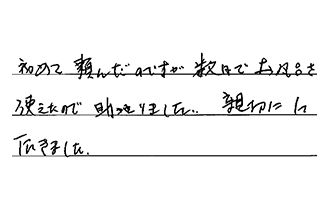 初めて頼んだのですが数日でお風呂を
使えたので助かりました。親切にして
頂きました。